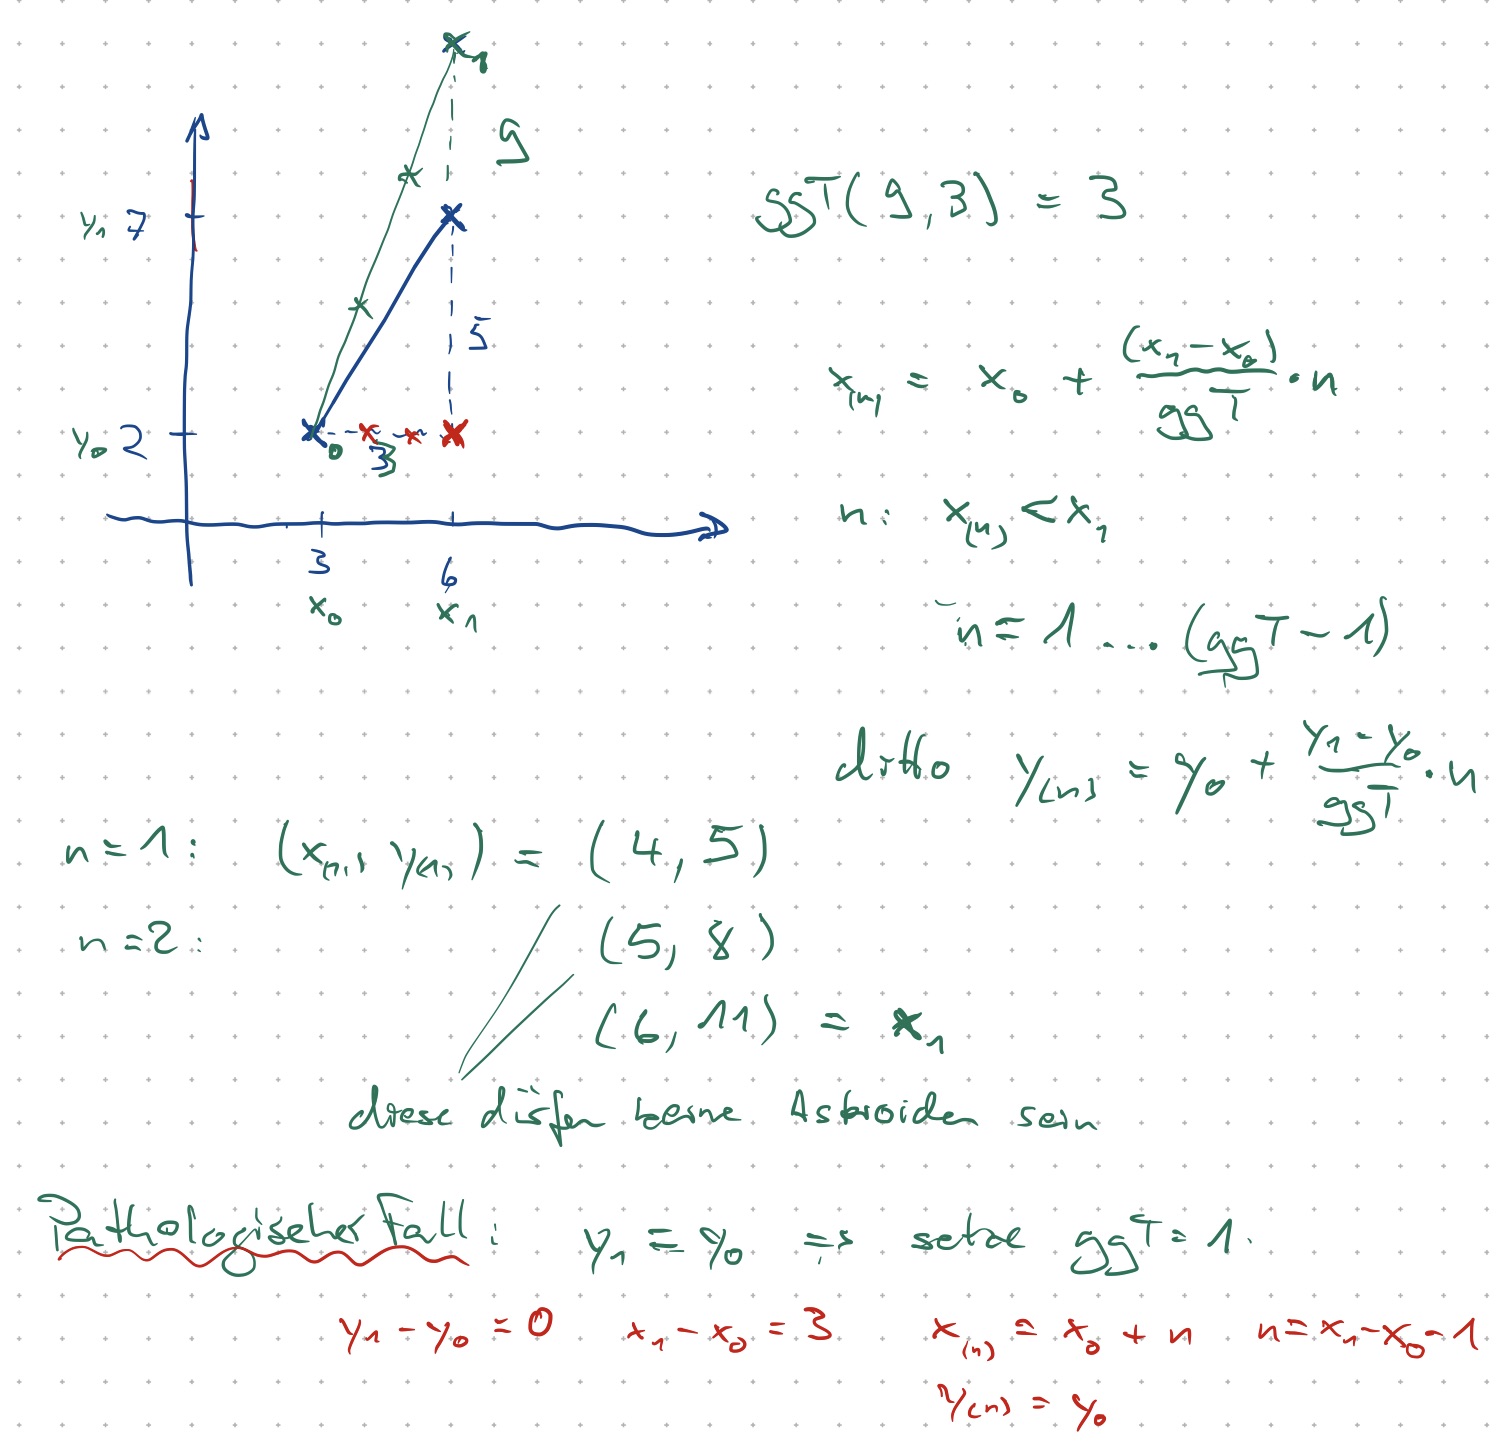 x₁
9
y₁ 7
ggT(9,3) = 3
5
x₍ₙ₎ = x₀ + (x₁ - x₀)/ggT · n
y₀ 2
0
3
n: x₍ₙ₎ < x₁
3 6
x₀ x₁
n = 1 .... (ggT - 1)
ditto y₍ₙ₎ = y₀ + (y₁ - y₀)/ggT · n
n = 1: (x₍ₙ₎, y₍ₙ₎) = (4, 5)
n = 2: (5, 8)
(6, 11) = x₁
diese dürfen keine Asteroiden sein
Pathologischer Fall: y₁ = y₀ => setze ggT = 1.
y₁ - y₀ = 0 x₁ - x₀ = 3 x₍ₙ₎ = x₀ + n n = x₁ - x₀ - 1
y₍ₙ₎ = y₀